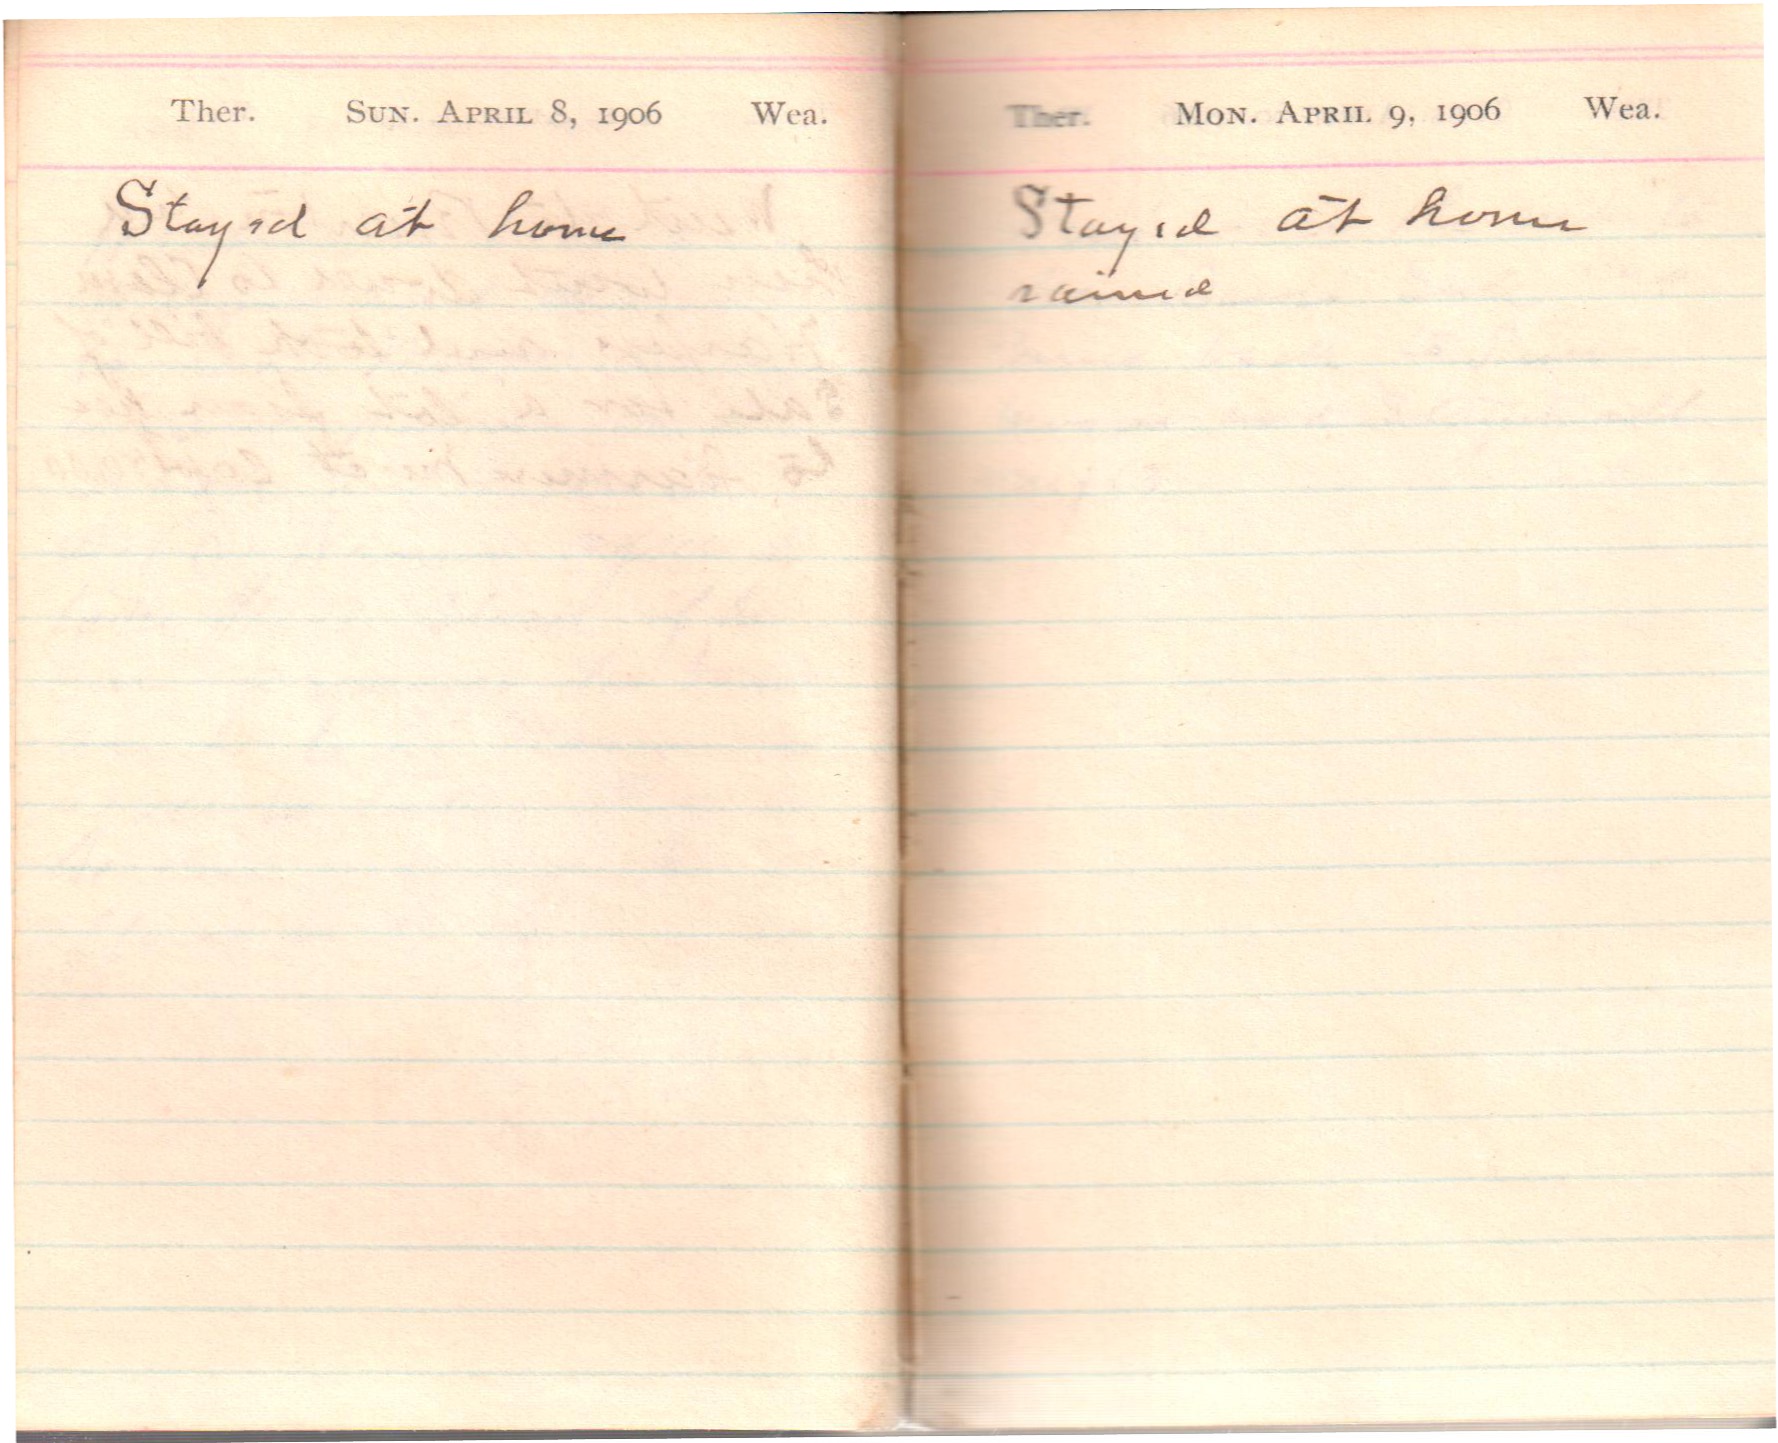 Ther. Sun. April 8, 1906 Wea.
Stayed at home
Ther. Mon. April 9, 1906 Wea.
Stayed at home
rained